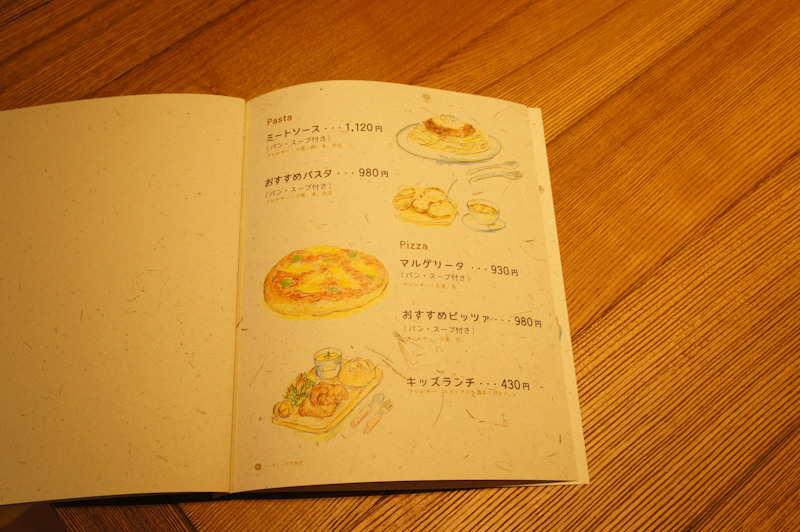 Pasta
ミートソース・・・1,120円
(パン・スープ付き)
おすすめパスタ・・・980円
(パン・スープ付き)
Pizza
マルゲリータ・・・930円
(パン・スープ付き)
おすすめピッツァ・・・980円
(パン・スープ付き)
キッズランチ・・・430円